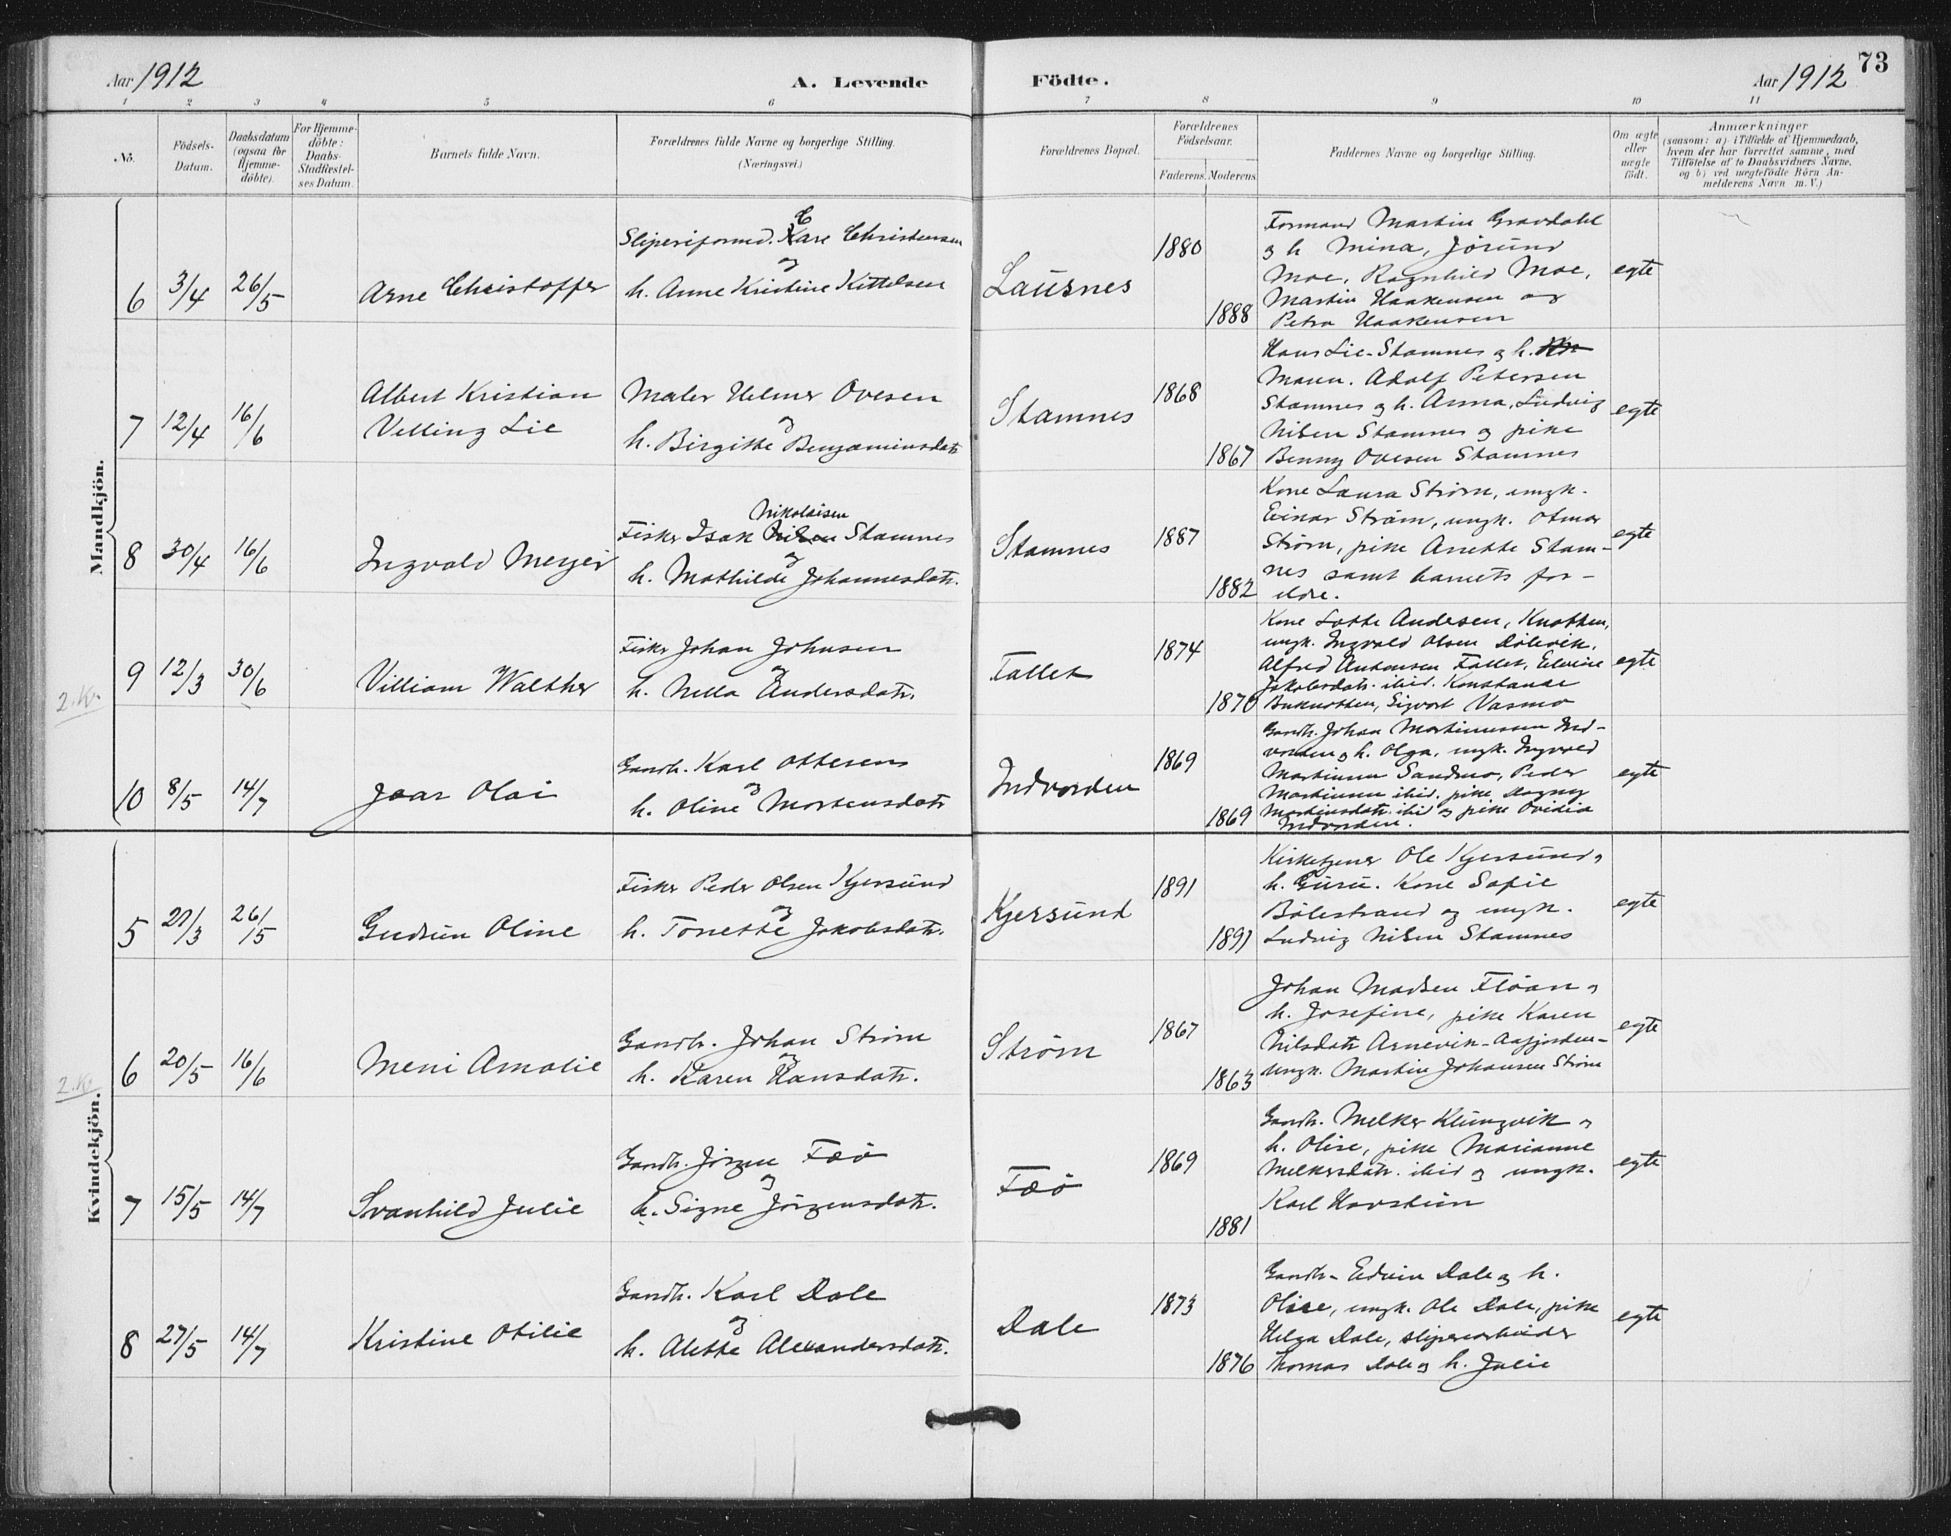 73
Aar 1912
A. Levende
Födte.
Aar 1912
1 2 3 4 5 6 7 8 9 10 11
No.
Födsels-
Datum.
Daabsdatum
(ogsaa for
Hjemme-
döbte).
For Hjemme-
döbte:
Daabs-
Stadfæstel-
ses Datum.
Barnets fulde Navn.
Forældrenes fulde Navne og borgerlige Stilling.
(Næringsvei.)
Forældrenes Bopæl.
Forældrenes
Födselsaar.
Faderens. Moderens.
Faddernes Navne og borgerlige Stilling.
Om ægte
eller
uægte
födt.
Anmærkninger
(saasom: a) i Tilfælde af Hjemmedaab,
hvem der har forrettet samme, med
Tilföielse af to Daabsvidners Navne,
og b) ved uægtefödte Börn An-
melderens Navn m. V.)
Mandkjön.
6 3/4 26/5
Arne Christoffer
Sliperiformd. Karl Christensen
og
h. Anne Kristine Kittelsen
Lausnes
1880
1888
Formand Martin Gravdahl
og h Mina, Jörund
Moe, Ragnhild Moe,
Martin Haakensen og
Petra Haakensen
egte
7 12/4 16/6
Albert Kristian
Velling Lie
Maler Helmer Ovesen
og
h. Birgitte Benjaminsdatr
Stamnes
1868
1867
Hans Lie-Stamnes og h.
Maren. Adolf Petersen
Stamnes og h. Anna, Ludvig
Nilsen Stamnes og pike
Benny Ovesen Stamnes
egte
8 30/4 16/6
Ingvald Meyer
Nikolaisen
Fisker Isak Nilsen Stamnes
og
h. Mathilde Johannesdatr.
Stamnes
1887
1882
Kone Laura Strøm, ungk.
Einar Strøm, ungk. Otmar
Strøm, pike Anette Stam-
nes samt barnets for-
eldre.
egte
2. Kr.
9 12/3 30/6
Villiam Walther
Fisker Johan Johnsen
og
h. Nella Andersdatr.
Fallet
1874
1870
Kone Lotte Andersen, Knotten,
ungk. Ingvald Olsen Dølevik,
Alfred Antonsen Fallet, Edvine
Jakobsdatr. ibid. Konstanse
Buknotten, Sigvart Vasmo
egte
10 8/5 14/7
Joar Olai
Gaardbr. Karl Ottersen
og
h. Oline Mortensdatr
Indvorden
1869
1869
Gaardbr. Johan Martinussen Ind-
vorden og h. Olga, ungk. Ingvald
Martinsen Sandmo, Peder
Martinsen ibid. pike Dagny
Martinsdatr. ibid og pike Ovidia
Indvorden.
egte
Kvindekjön.
5 21/3 26/5
Gudrun Oline
Fisker Peder Olsen Kjersund
og
h. Tonette Jakobsdatr.
Kjersund
1891
1891
Kirketjener Ole Kjersund og
h. Guru. Kone Sofie
Bölestrand og ungk.
Ludvig Nilsen Stamnes
egte
2. Kr
6 20/5 16/6
Meni Amalie
Gaardbr. Johan Strøm
og
h. Karen Hansdatr.
Strøm
1867
1863
Johan Madsen Fløan og
h. Josefine, pike Karen
Nilsdatr Arnevik-Aafjorden-
ungk. Martin Johansen Strøm
egte
7 15/5 14/7
Svanhild Julie
Gaardbr. Jörgen Fæö
og
h. Signe Jörgensdatr.
Fæö
1869
1881
Gaardbr. Melker Klungvik og
h. Olise, pike Marianne
Melkersdatr. ibid og ungk.
Karl Havstein
egte
8 27/5 14/7
Kristine Otilie
Gaardbr. Karl Dale
og
h. Alette Alexandersdatr.
Dale
1873
1876
Gaardbr. Edvin Dale og h.
Olise, ungk. Ole Dale, pike
Helga Dale, sliperiarbeider
Thomas Dale og h. Julie
egte